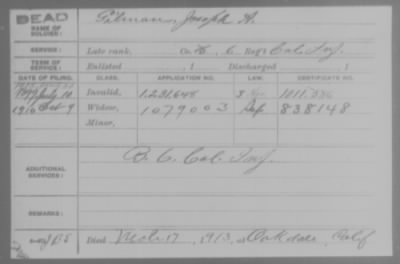 DEAD
NAME OF SOLDIER: Gilman, Joseph A.
SERVICE: Late rank, Co. K, 6 Reg't Cal. Inf.
TERM OF SERVICE: Enlisted , 1 Discharged , 1
DATE OF FILING. CLASS. APPLICATION NO. LAW. CERTIFICATE NO.
1899 July 10 Invalid, 1.231.648
1916 Oct 9 Widow, 1079003 838148
Minor,
ADDITIONAL SERVICES: B. 6. Cal. Inf.
REMARKS:
Died Mch 17, 1913, at Oakdale, Calif